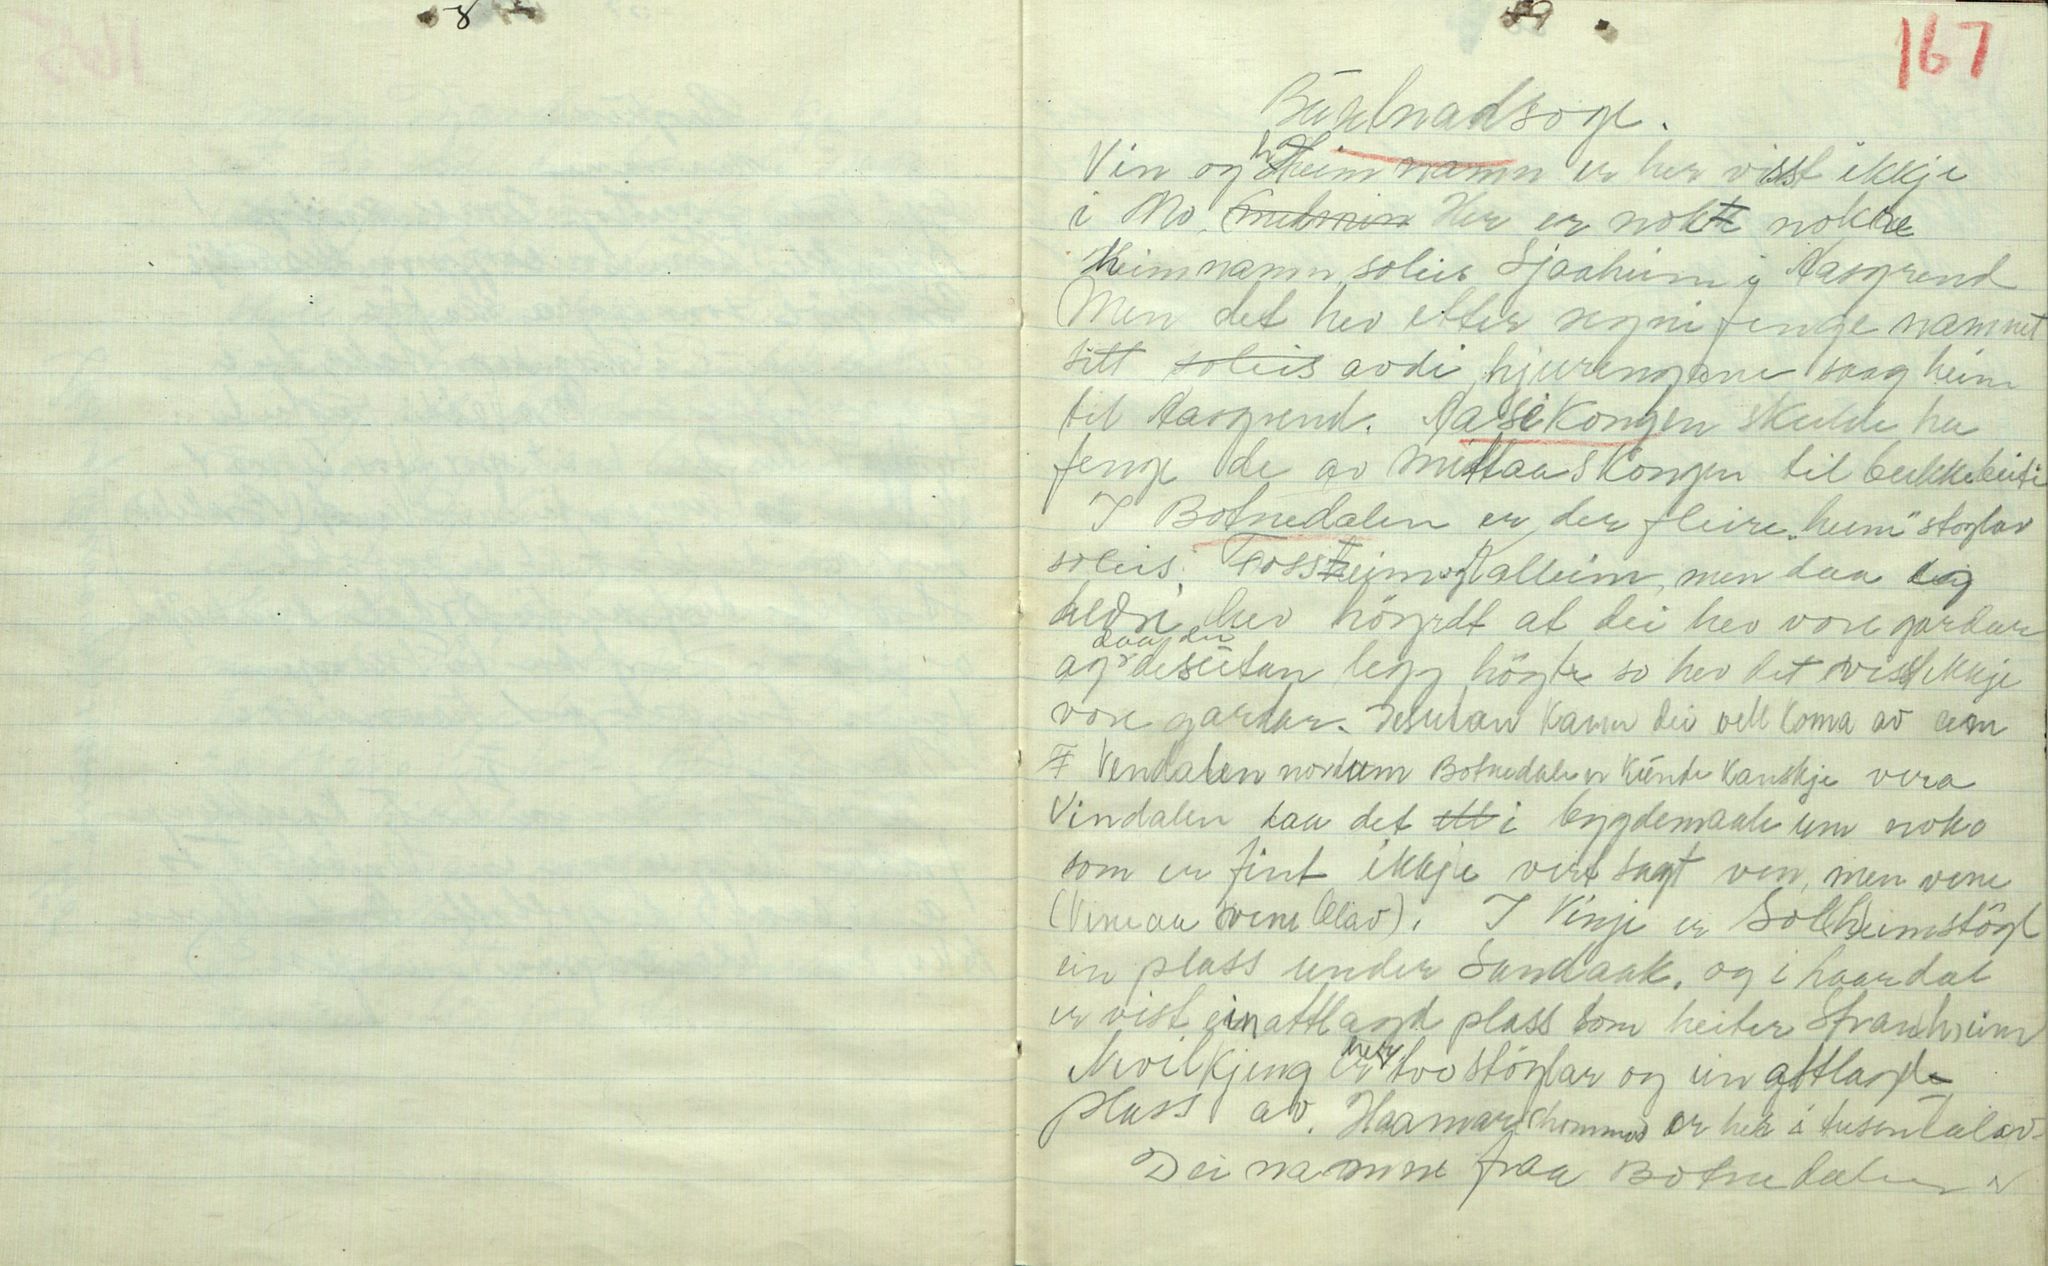 8
167
Buseturnadsoge.
Vin og heim namn er her visst ikkje
i Mo. Her er nok nokre
Heimnamn soleis Sjaaheim i Aasgrend
Men det hev etter segni fenge namnet
sitt soleis avdi hjuringane saag heim
til Aasgrend. Aasekongen skulde ha
fenge de av Mittaaskongen til bukkebeite
I Botnedalen er der fleire "heim" stoylar
soleis Fossheim og Kalleim, men daa eig
aldri hev höyrdt at dei hev vore gardar
og daa dei desutan legg högt so hev det visst ikkje
vore gardar. Desutan kann dei vell koma av
Vendalen nordum Botnedalen künde kanskje vera
Vindalen daa det i bygdemaale um noko
som er fint ikkje vert sagt ven, men vene
(Vene aa vene Olav). I Vinje er Sol(h)eimstöyl
ein plass under Sandaak, og i haardal
er vist ein attlagd plass som heiter Stran(h)eim
Kvilkjeng er her tvo stöylar og ein attlagde
plass av. Haamar er her i tusentalav.
Dei namne fraa Botnedalen